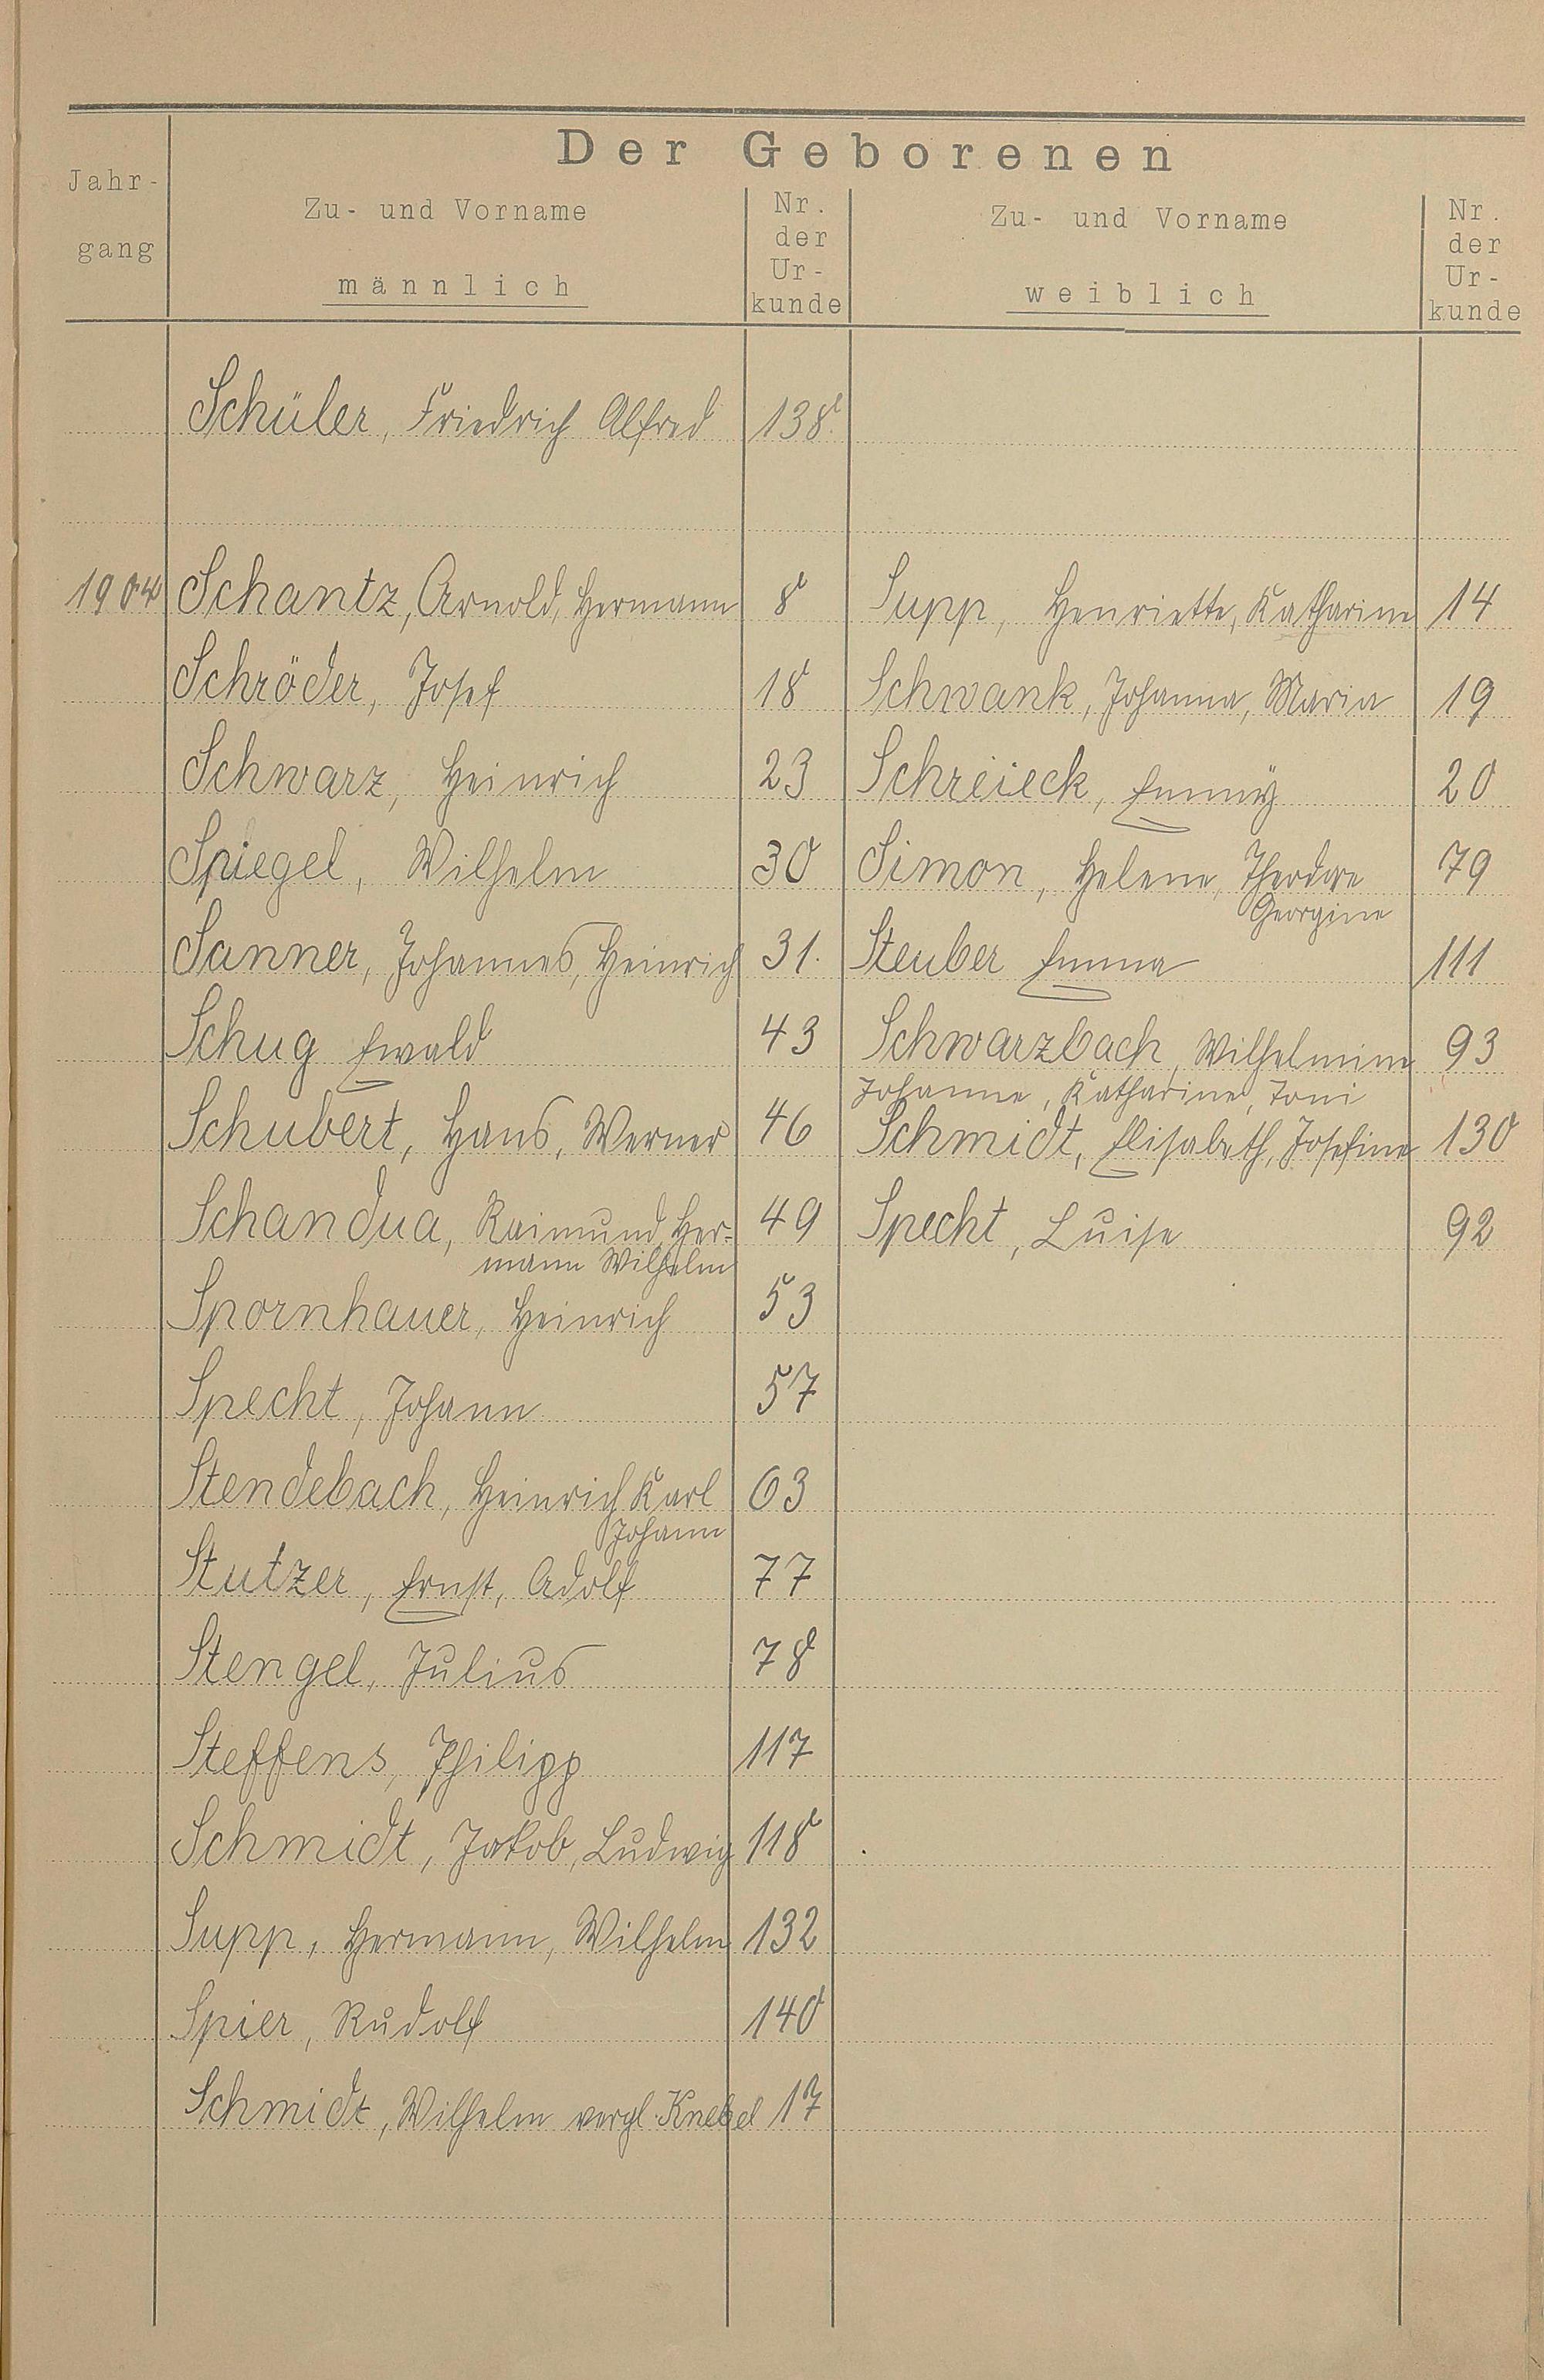 Der Geborenen
Jahr-
gang
Zu- und Vorname
männlich
Nr.
der
Ur-
kunde
Zu- und Vorname
weiblich
Nr.
der
Ur-
kunde
Schüler, Friedrich Alfred 138.
1904 Schantz, Arnold, Hermann 8 Supp, Henriette, Katharine 14
Schröder, Josef 18 Schwank, Johanna, Maria 19
Schwarz, Heinrich 23 Schreieck, Emmy 20
Spiegel, Wilhelm 30 Simon, Helene, Theodore 79
Georgine
Sanner, Johannes, Heinrich 31. Steuber Emma 111
Schug Ewald 43 Schwarzbach, Wilhelmine 93
Johanne, Katharine, Toni
Schubert, Hans, Werner 46 Schmidt, Elisabeth, Josefine 130
Schandua, Raimund, Her- 49 Specht, Luise 92
mann Wilhelm
Spornhauer, Heinrich 53
Specht, Johann 57
Stendebach, Heinrich Karl 63
Johann
Stutzer, Ernst, Adolf 77
Stengel, Julius 78
Steffens, Philipp 117
Schmidt, Jakob, Ludwig 118
Supp, Hermann, Wilhelm 132
Spier, Rudolf 140
Schmidt, Wilhelm vergl. Knebel 17